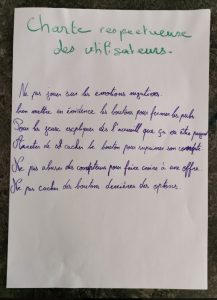 Charte respectueuse
des utilisateurs.
Ne pas jouer sur les émotions négatives.
bien mettre en évidence les boutons pour fermer les pubs
Pour les jeux expliquer dès l'accueil que ça va être payant
Arrêter de cacher le bouton pour supprimer son compte
Ne pas abuser des compteurs pour faire croire à une offre.
Ne pas cacher des boutons derrières des options.